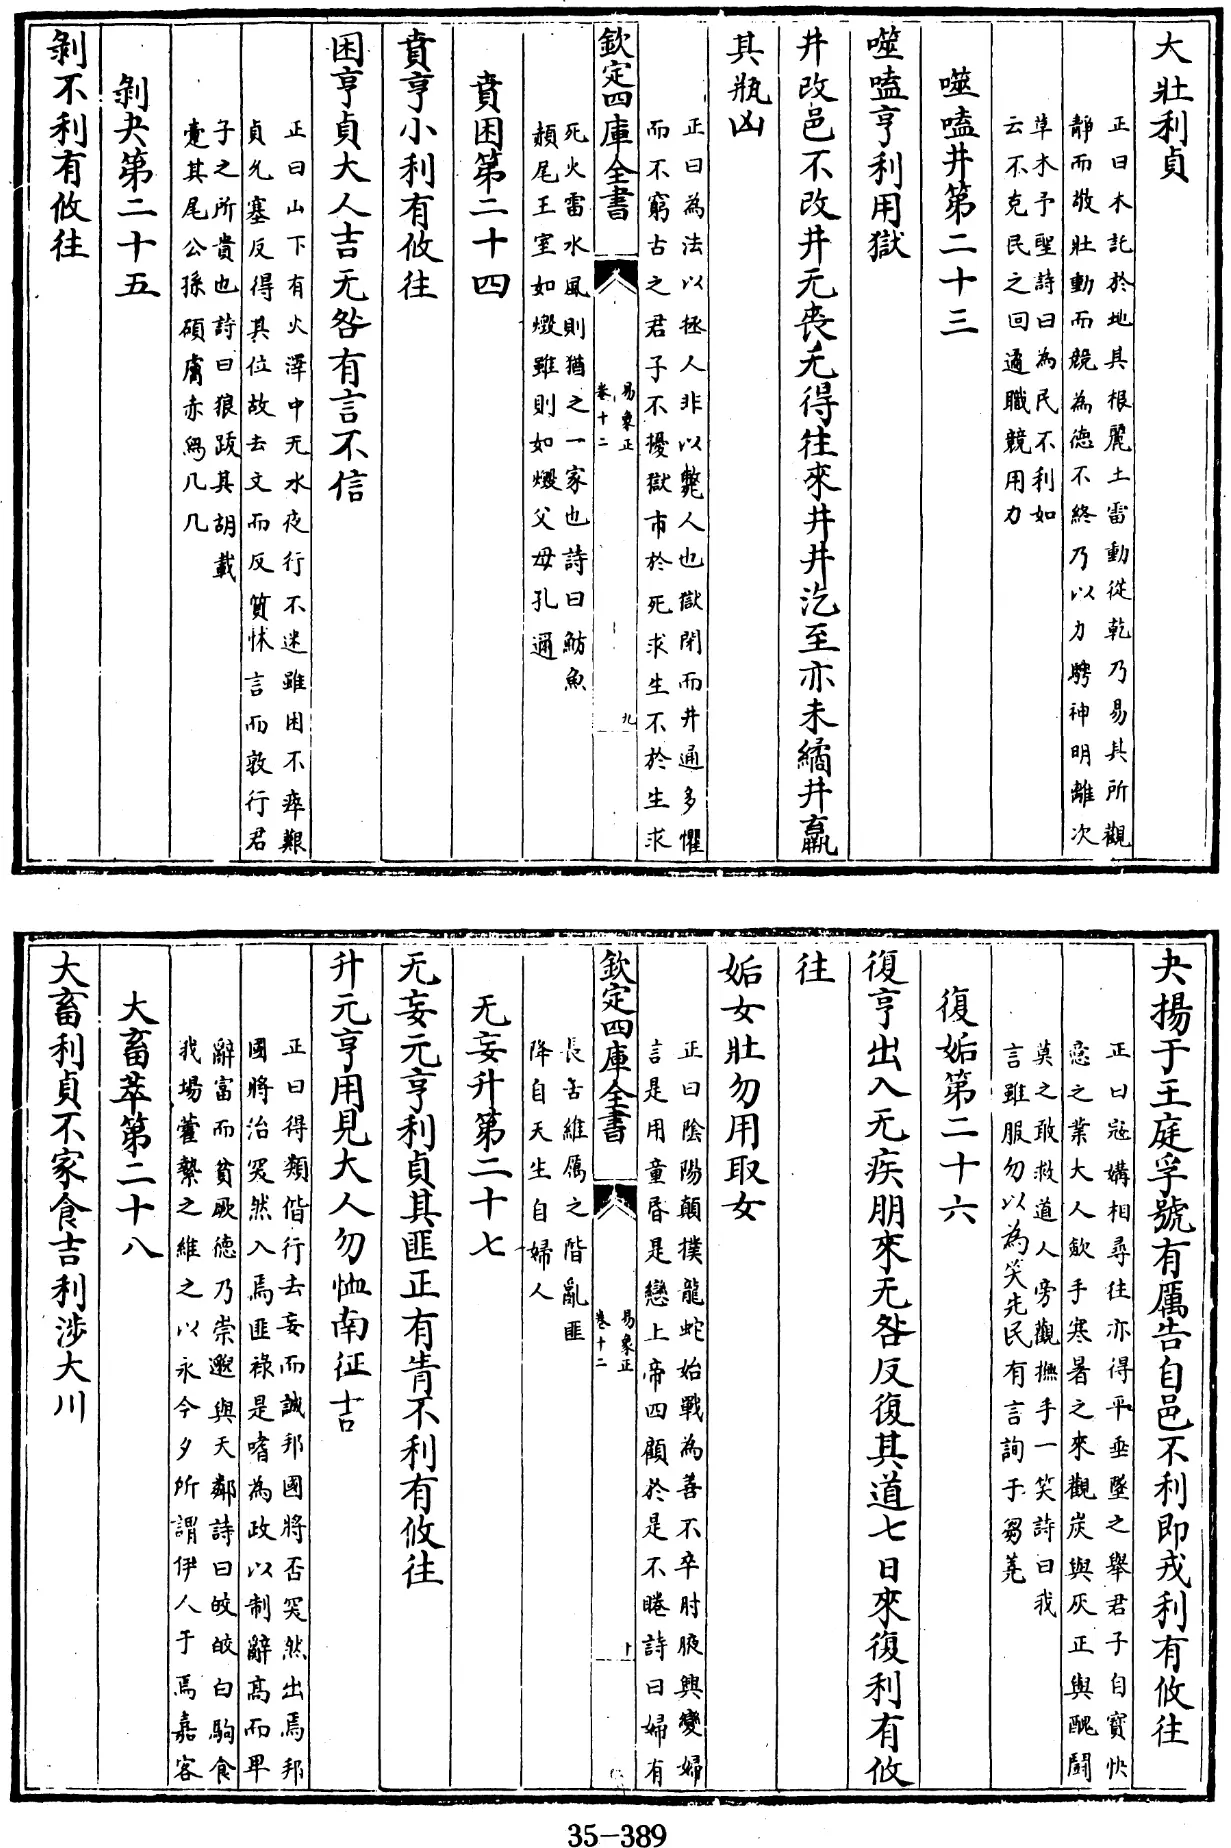 大壯利貞
正曰木託於地其根麗土雷動從乾乃易其所觀
靜而敬壯動而競為德不終乃以力騁神明離次
草木予聖詩曰為民不利如
云不克民之回遹職競用力
噬嗑井第二十三
噬嗑亨利用獄
井改邑不改井无喪无得往來井井汔至亦未繘井羸
其瓶凶
正曰為法以拯人非以斃人也獄閉而井通多懼
而不窮古之君子不擾獄市於死求生不於生求
欽定四庫全書
易象正
卷十二
九
死火雷水風則猶之一家也詩曰魴魚
頳尾王室如燬雖則如燬父母孔邇
賁困第二十四
賁亨小利有攸往
困亨貞大人吉无咎有言不信
正曰山下有火澤中无水夜行不迷雖困不瘁艱
貞允塞反得其位故去文而反質怵言而敦行君
子之所貴也詩曰狼跋其胡載
疐其尾公孫碩膚赤舄几几
剝夬第二十五
剝不利有攸往
夬揚于王庭孚號有厲告自邑不利即戎利有攸往
正曰冦媾相尋往亦得平垂墜之舉君子自寶快
悆之業大人歛手寒暑之來觀炭與灰正與醜鬪
莫之敢救道人旁觀撫手一笑詩曰我
言雖服勿以為笑先民有言詢于芻蕘
復姤第二十六
復亨出入无疾朋來无咎反復其道七日來復利有攸
往
姤女壯勿用取女
正曰陰陽顛撲龍蛇始戰為善不卒肘腋興變婦
言是用童昏是戀上帝四顧於是不睠詩曰婦有
欽定四庫全書
易象正
卷十二
十
長舌維厲之階亂匪
降自天生自婦人
无妄升第二十七
无妄元亨利貞其匪正有眚不利有攸往
升元亨用見大人勿恤南征吉
正曰得類偕行去妄而誠邦國將否突然出焉邦
國將治突然入焉匪祿是嗜為政以制辭高而卑
辭富而貧厥德乃崇邈與天鄰詩曰皎皎白駒食
我場藿縶之維之以永今夕所謂伊人于焉嘉客
大畜萃第二十八
大畜利貞不家食吉利涉大川
35-389